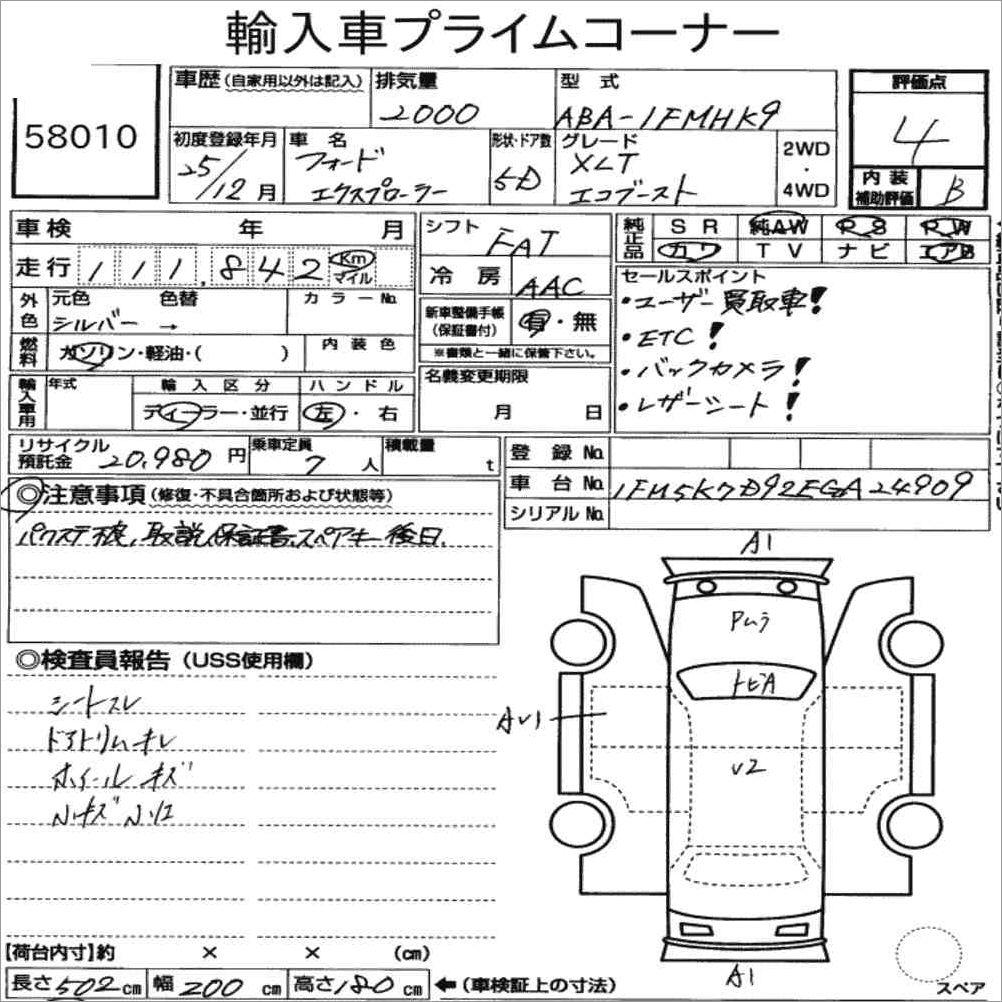 輸入車プライムコーナー
58010
車歴(自家用以外は記入)
排気量
2000
型式
ABA-1FMHK9
評価点
4
初度登録年月
25/12月
車名
フォード
エクスプローラー
形状・ドア数
5D
グレード
XLT
エコブースト
2WD
・
4WD
内装
補助評価
B
車検 年 月
走行 111,842 Km
マイル
外色
元色 色替
シルバー →
カラーNo.
燃料
ガソリン・軽油・( )
内装色
輸入車用
年式
輸入区分
ディーラー・並行
ハンドル
左・右
シフト
FAT
冷房
AAC
新車整備手帳
(保証書付)
有・無
※書類と一緒に保管下さい。
名義変更期限
月 日
純正品
SR 純AW PS PW
カワ TV ナビ エアB
セールスポイント
・ユーザー買取車!
・ETC!
・バックカメラ!
・レザーシート!
リサイクル
預託金
20,980円
乗車定員
7人
積載量
t
登録No.
車台No. 1FM5K7D92EGA24909
シリアルNo.
◎注意事項(修復・不具合箇所および状態等)
取説、保証書、スペアキー後日
◎検査員報告(USS使用欄)
シートスレ
ドアトリムキレ
ホイールキズ
A1
Pムラ
トビA
AU1
U2
A1
スペア
【荷台内寸】約 × × (cm)
長さ502cm 幅200cm 高さ180cm ←(車検証上の寸法)